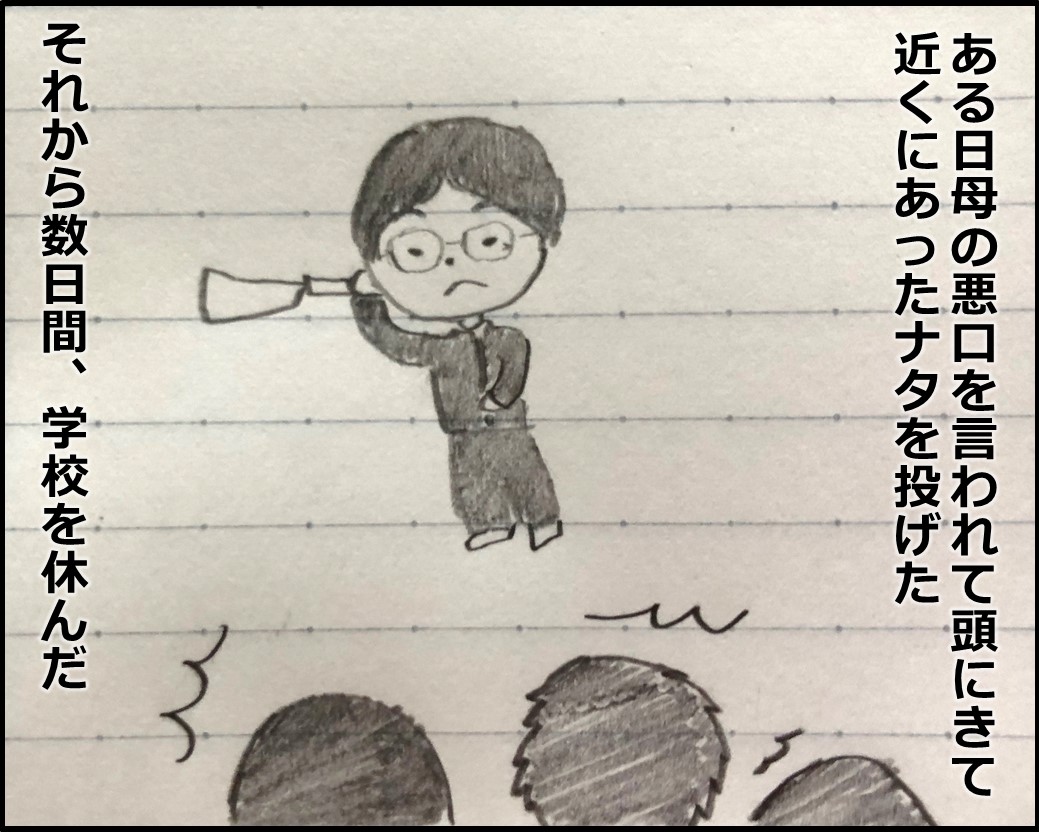 ある日母の悪口を言われて頭にきて
近くにあったナタを投げた
それから数日間、学校を休んだ